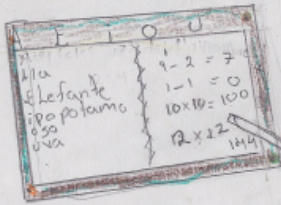 A E I O U
Elefante
ipopotamo
oso
uva
9-2=7
1-1=0
10x10=100
12x12
144